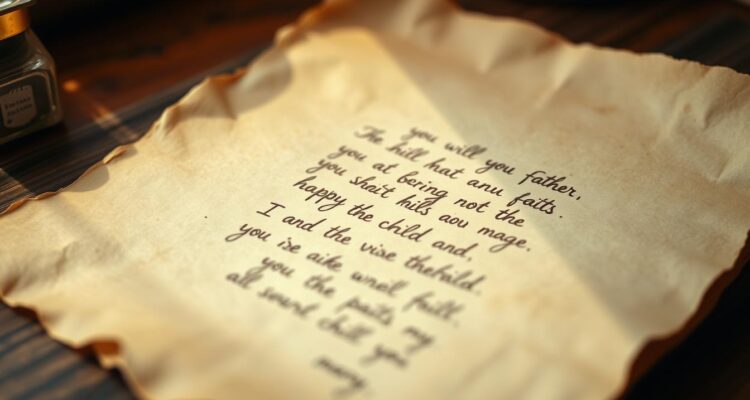 you will you father,
The hill hat anu faits.
you at being not the
you shait hils aou mage.
happy the child and,
I and the vise thefaild.
you ise aike wnel full.
you the paits my
all sowrt chill you